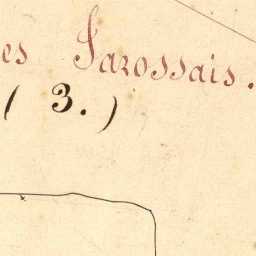 es Jarossais.
( 3. )